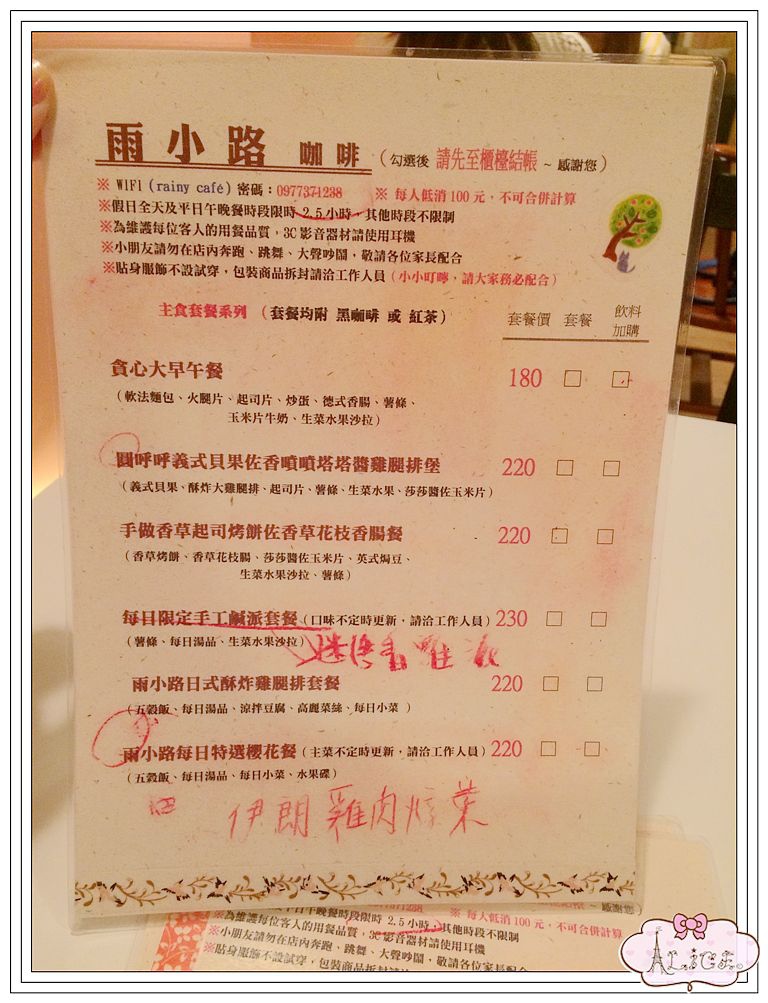 雨小路 咖啡 (勾選後 請先至櫃檯結帳 ~ 感謝您)
※ WIFI (rainy café) 密碼:0977371238 ※ 每人低消 100 元,不可合併計算
※假日全天及平日午晚餐時段限時 2.5 小時,其他時段不限制
※為維護每位客人的用餐品質,3C 影音器材請使用耳機
※小朋友請勿在店內奔跑、跳舞、大聲吵鬧,敬請各位家長配合
※貼身服飾不設試穿,包裝商品拆封請洽工作人員(小小叮嚀,請大家務必配合)
主食套餐系列 (套餐均附 黑咖啡 或 紅茶) 套餐價 套餐 飲料加購
貪心大早午餐 180 □ □
(軟法麵包、火腿片、起司片、炒蛋、德式香腸、薯條、
玉米片牛奶、生菜水果沙拉)
圓呼呼義式貝果佐香噴噴塔塔醬雞腿排堡 220 □ □
(義式貝果、酥炸大雞腿排、起司片、薯條、生菜水果、莎莎醬佐玉米片)
手做香草起司烤餅佐香草花枝香腸餐 220 □ □
(香草烤餅、香草花枝腸、莎莎醬佐玉米片、英式焗豆、
生菜水果沙拉、薯條)
每日限定手工鹹派套餐(口味不定時更新,請洽工作人員) 230 □ □
(薯條、每日湯品、生菜水果沙拉)
雨小路日式酥炸雞腿排套餐 220 □ □
(五穀飯、每日湯品、涼拌豆腐、高麗菜絲、每日小菜 )
雨小路每日特選櫻花餐(主菜不定時更新,請洽工作人員) 220 □ □
(五穀飯、每日湯品、每日小菜、水果碟)
伊朗雞肉 葉
~ 感謝您)
平日午晚餐時段限時 2.5 小時,其他時段不限制 ※ 每人低消 100 元,不可合併計算
※為維護每位客人的用餐品質,3C 影音器材請使用耳機
※小朋友請勿在店內奔跑、跳舞、大聲吵鬧,敬請各位家長配合
※貼身服飾不設試穿,包裝商品拆封
ALICE.